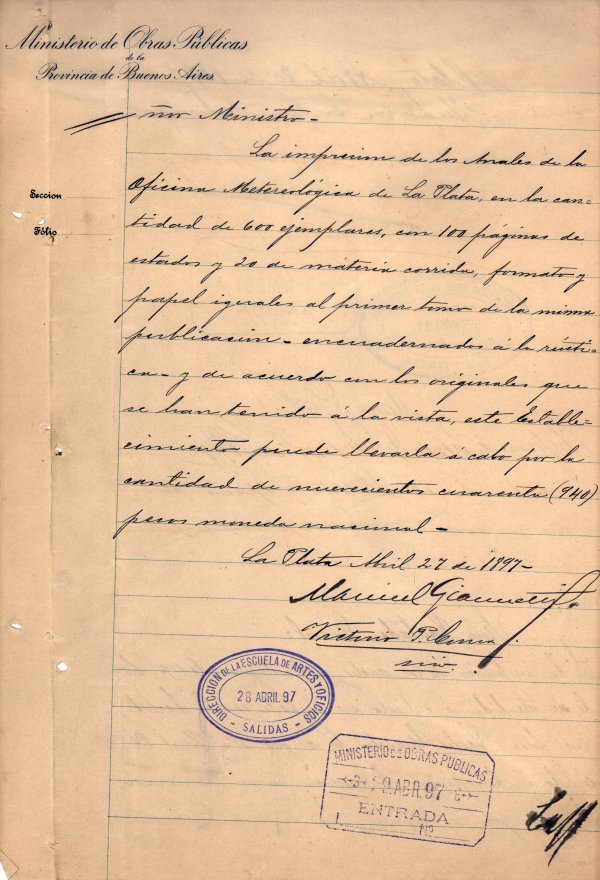 Ministerio de Obras Públicas
de la
Provincia de Buenos Aires
ñor Ministro-
La impresion de los Anales de la
Oficina Metereológica de La Plata, en la can-
tidad de 600 ejemplares, con 100 páginas de
estados y 20 de materia corrida, formato y
papel iguales al primer tomo de la misma
publicacion - encuadernados á la rústi-
ca - y de acuerdo con los originales que
se han tenido á la vista, este Estable-
cimiento puede llevarla á cabo por la
cantidad de nuevecientos cuarenta (940)
pesos moneda nacional -
La Plata Abril 27 de 1897-
Manuel
Victorio P.
Seccion
Fólio
DIRECCION DE LA ESCUELA DE ARTES Y OFICIOS
28 ABRIL 97
- SALIDAS -
MINISTERIO DE OBRAS PUBLICAS
28 ABR. 97
ENTRADA
No